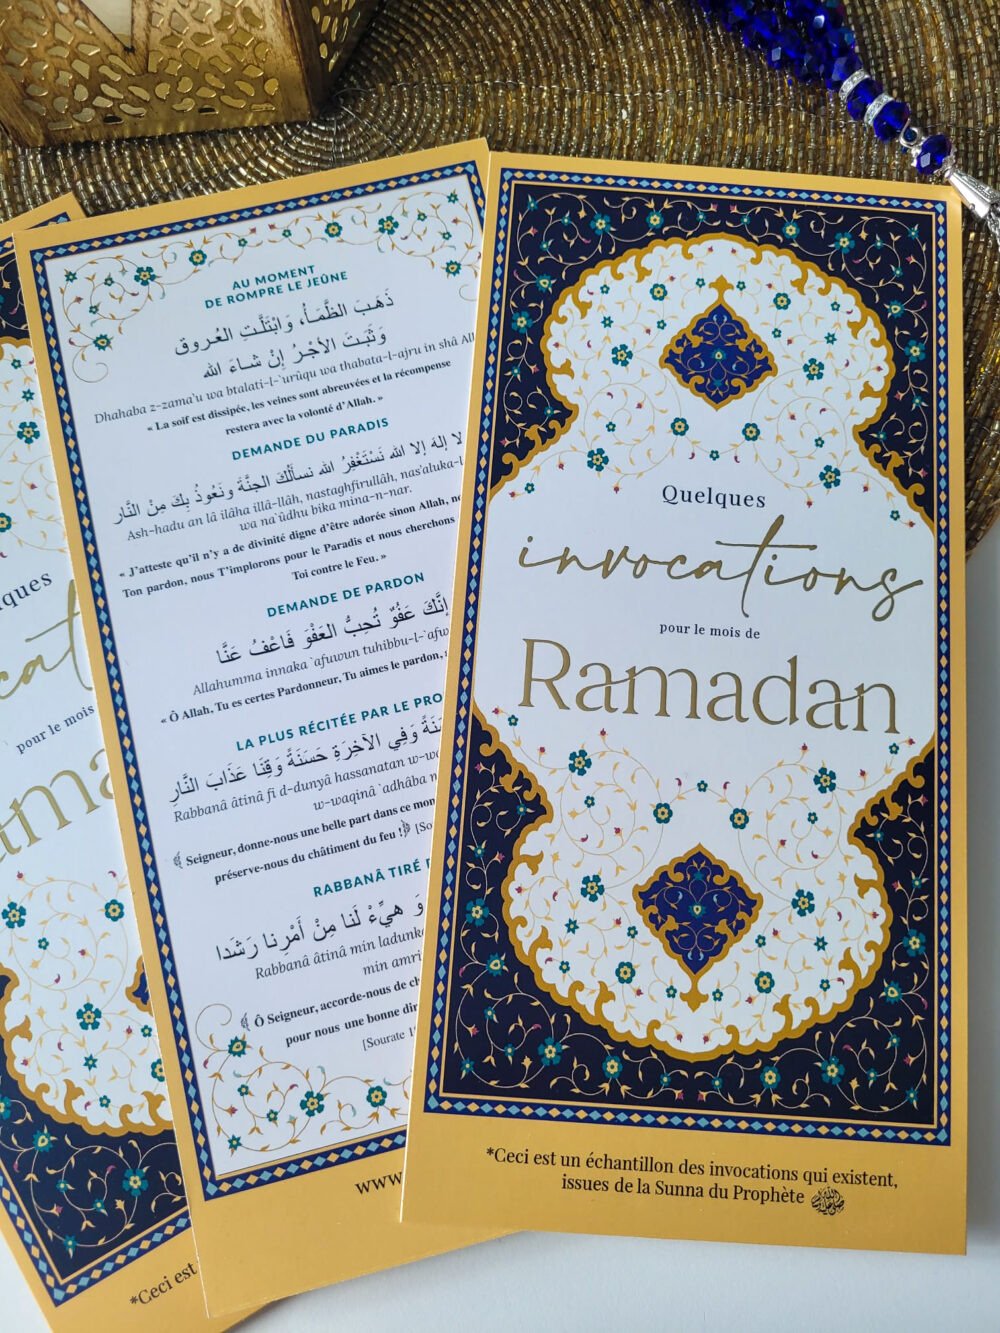 AU MOMENT
DE ROMPRE LE JEÛNE
ذَهَبَ الظَّمَأُ، وَابْتَلَّتِ العُروق
وَثَبَتَ الأجْرُ إِنْ شاءَ الله
Dhahaba z-zama'u wa btalati-l-`urûqu wa thabata-l-ajru in shâ All
« La soif est dissipée, les veines sont abreuvées et la récompense
restera avec la volonté d'Allah. »
DEMANDE DU PARADIS
لا إلهَ إلا الله نَسْتَغْفِرُ الله نسألُكَ الجنَّةَ ونَعُوذُ بِكَ مِنْ النَّار
Ash-hadu an lâ ilâha illâ-llâh, nastaghfirullâh, nas'aluka-l
wa na`ûdhu bika mina-n-nar.
« J'atteste qu'il n'y a de divinité digne d'être adorée sinon Allah, no
Ton pardon, nous T'implorons pour le Paradis et nous cherchons
Toi contre le Feu. »
DEMANDE DE PARDON
إِنَّكَ عَفُوٌّ تُحِبُّ العَفْوَ فَاعْفُ عَنَّا
Allahumma innaka `afuwun tuhibbu-l-`afw
« Ô Allah, Tu es certes Pardonneur, Tu aimes le pardon,
LA PLUS RÉCITÉE PAR LE PRO
سَنَةً وَفِي الآخِرَةِ حَسَنَةً وَقِنَا عَذَابَ النَّارِ
Rabbanâ âtinâ fi d-dunyâ hassanatan w-w
w-waqinâ `adhâba n
Seigneur, donne-nous une belle part dans ce mon
préserve-nous du châtiment du feu ! [Sou
RABBANÂ TIRÉ D
وَ هيِّءْ لَنا مِنْ أَمْرِنا رَشَدا
Rabbanâ âtinâ min ladunk
min amri
Ô Seigneur, accorde-nous de c
pour nous une bonne dir
[Sourate 1
www.
Quelques
invocations
pour le mois de
Ramadan
*Ceci est un échantillon des invocations qui existent,
issues de la Sunna du Prophète ﷺ
ques
cat
pour le mois
ama
*Ceci est